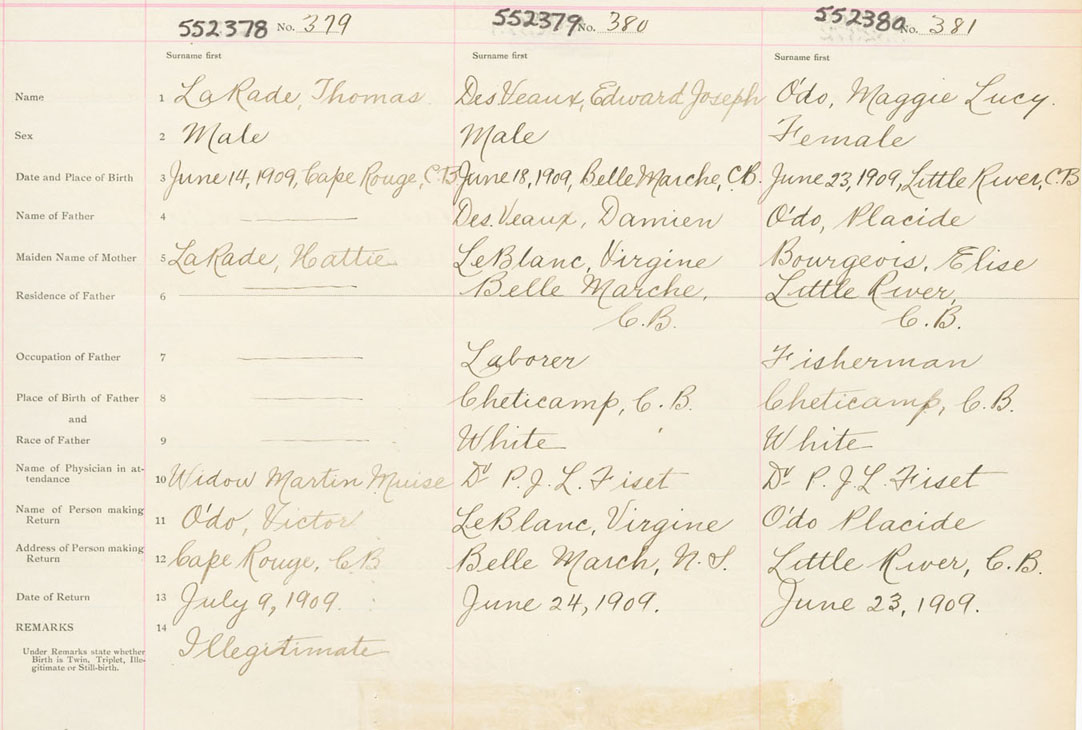 552378 No. 379 552379 No. 380 552380 No. 381
Surname first Surname first Surname first
Name 1 LaRade, Thomas. DesVeaux, Edward Joseph O'do, Maggie Lucy.
Sex 2 Male Male Female
Date and Place of Birth 3 June 14, 1909, Cape Rouge, C.B. June 18, 1909, Belle Marche, C.B. June 23, 1909, Little River, C.B
Name of Father 4 Des. Veaux, Damien O'do, Placide
Maiden Name of Mother 5 LaRade, Hattie LeBlanc, Virgine Bourgeois, Elise
Residence of Father 6 Belle Marche, Little River,
C.B. C.B.
Occupation of Father 7 Laborer Fisherman
Place of Birth of Father 8 Cheticamp, C.B. Cheticamp, C.B.
and
Race of Father 9 White White
Name of Physician in at-
tendance 10 Widow Martin Muise Dr. P.J.L. Fiset Dr. P.J.L. Fiset
Name of Person making
Return 11 O'do, Victor LeBlanc, Virgine O'do Placide
Address of Person making
Return 12 Cape Rouge, C.B Belle March, N.S. Little River, C.B.
Date of Return 13 July 9, 1909. June 24, 1909. June 23, 1909.
REMARKS 14
Illegitimate
Under Remarks state whether
Birth is Twin, Triplet, Ille-
gitimate or Still-birth.